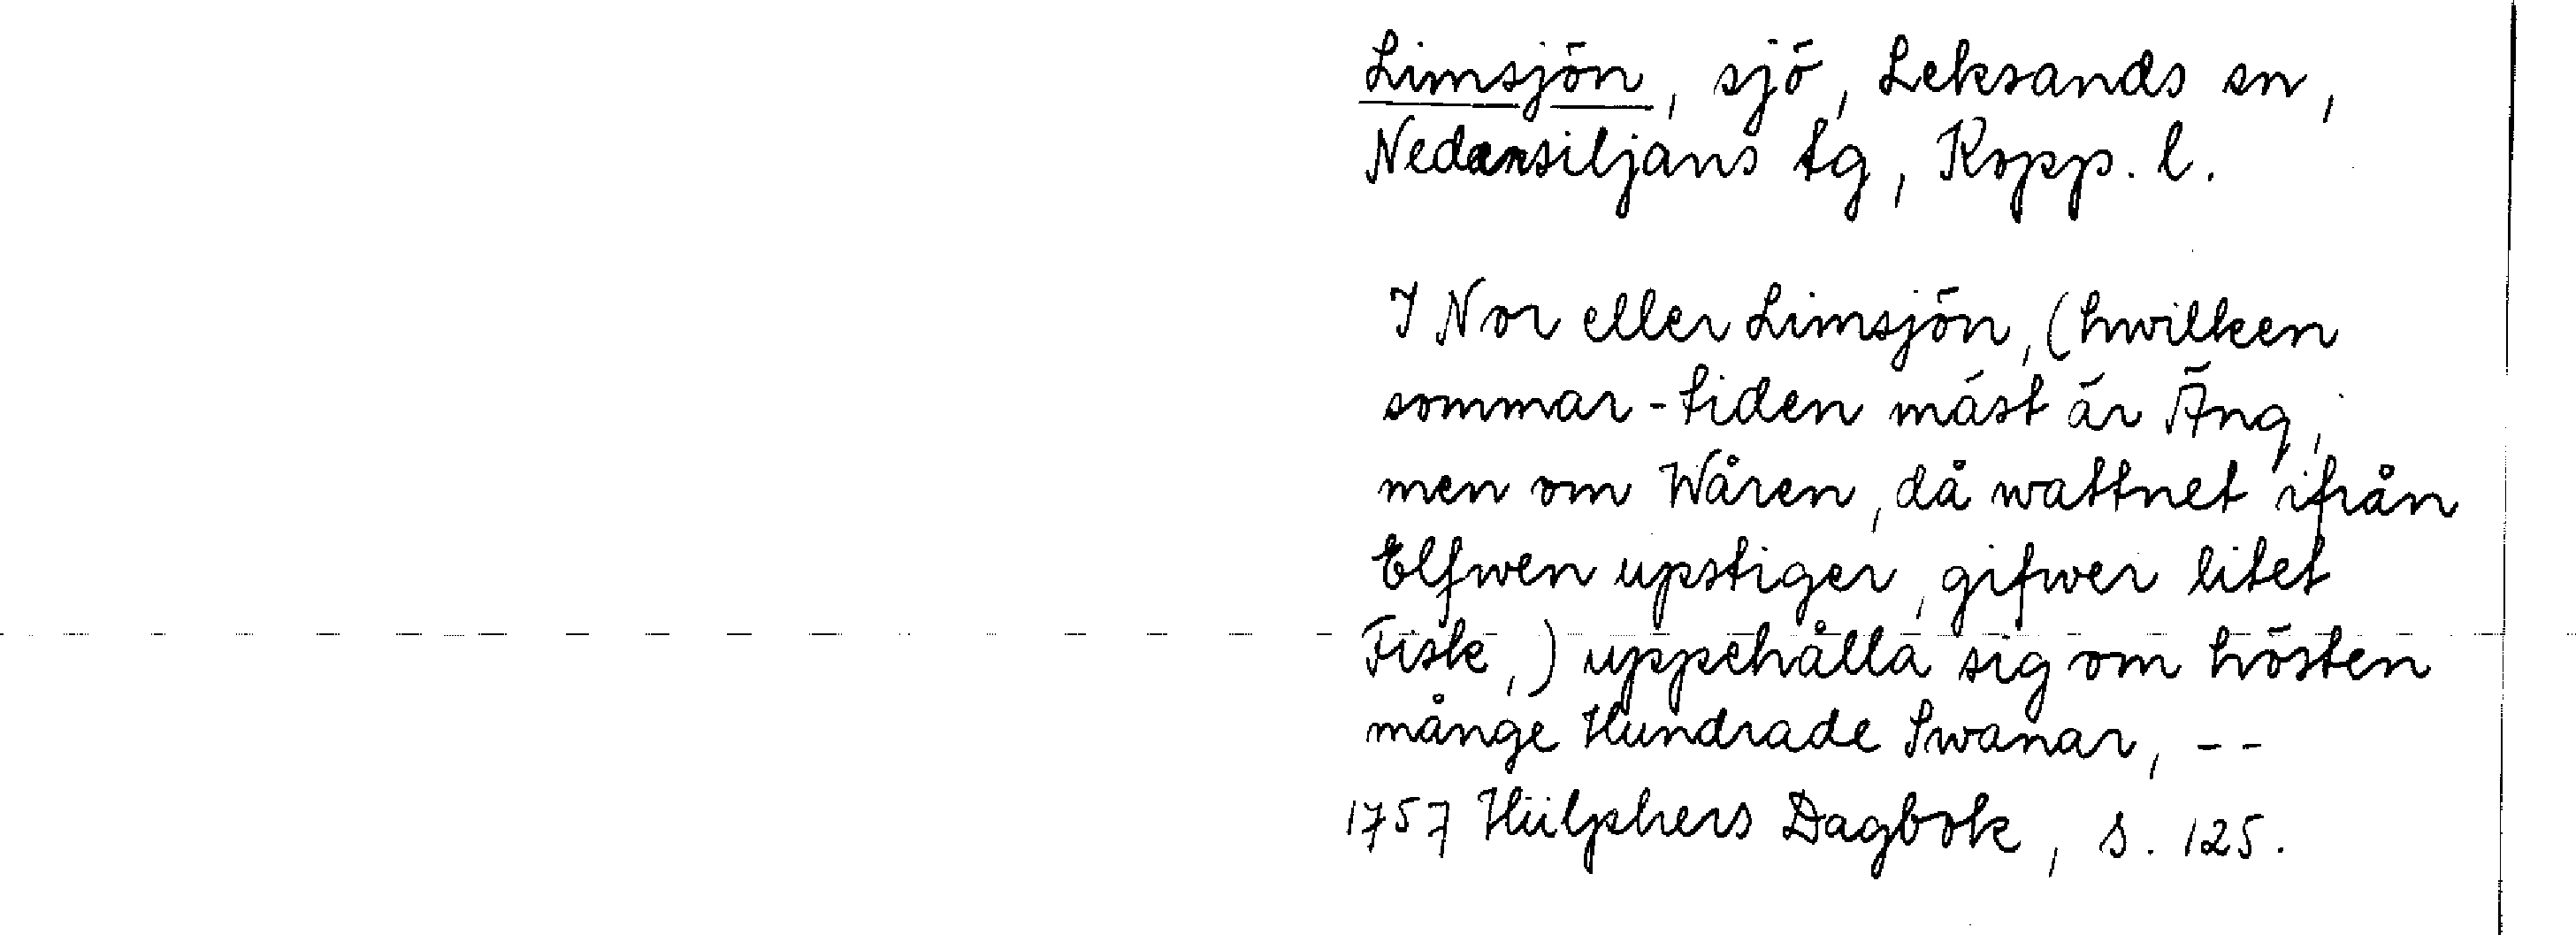 Limsjön, sjö, Leksands sn,
Nedansiljans tg, Kopp. l.
I Nor eller Limsjön, (hwilken
sommar-tiden mäst är Äng,
men om Wåren, då wattnet ifrån
Elfwen upstiger, gifwer litet
Fisk,) uppehålla sig om hösten
månge Hundrade Swanar, --
1757 Hülphers Dagbok, s. 125.